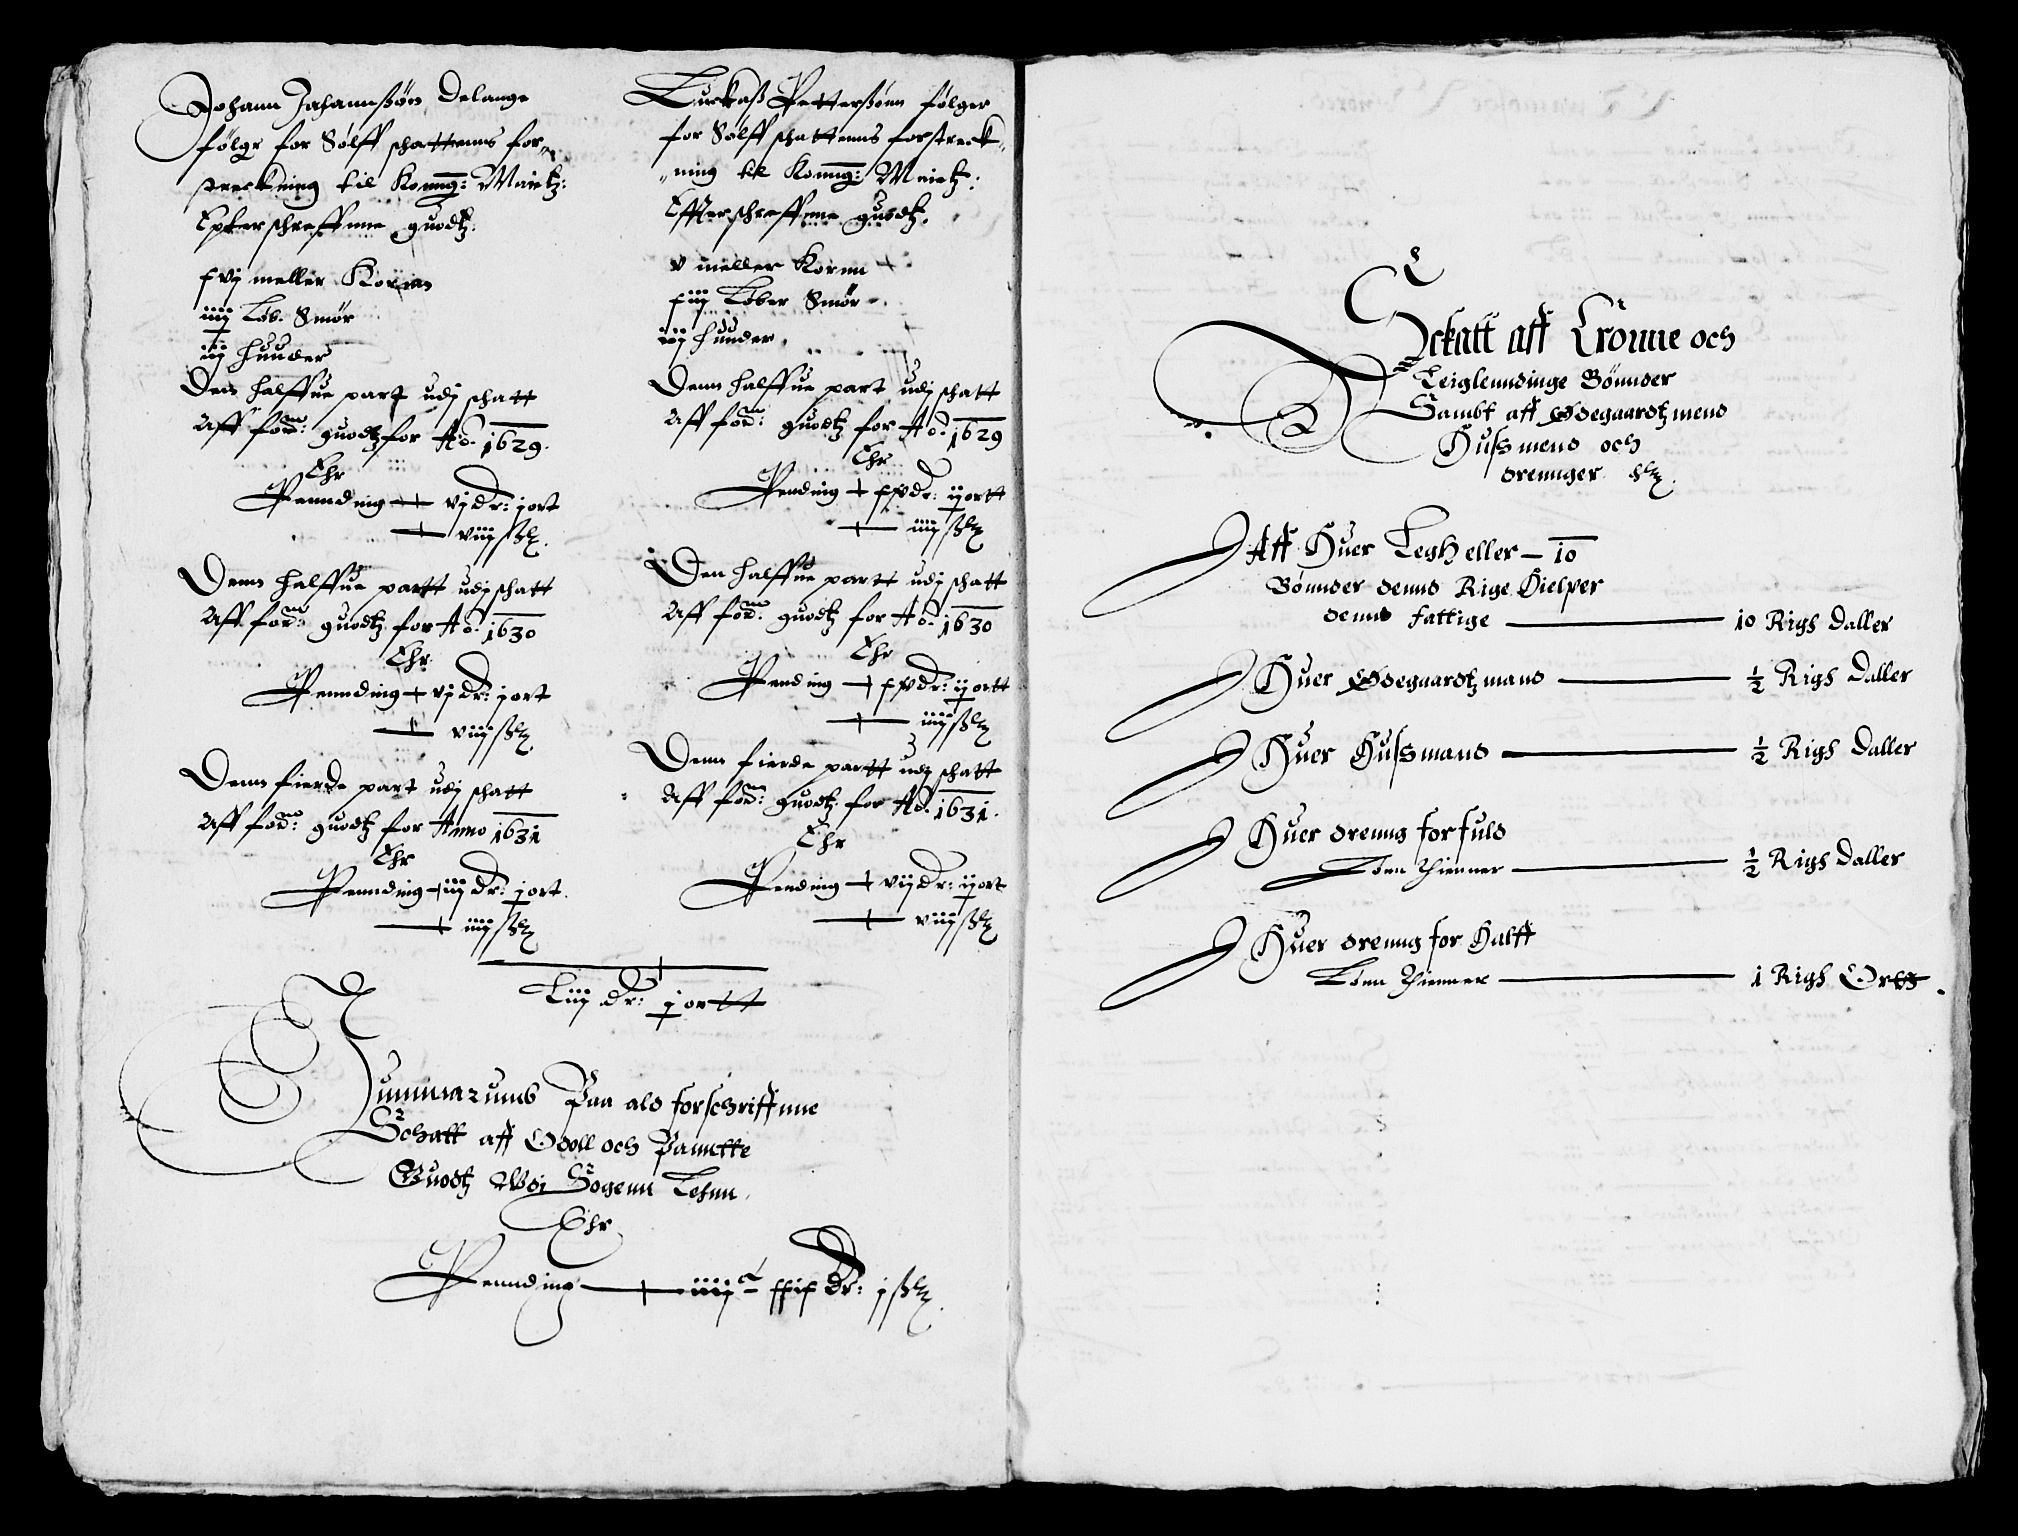 Johann Jahannßøn Delange
følger for Sølff schattenns for„
streckning til Konng: Maietz:
Epterschreffnne guodtz.
xvj meller Korenn
iiij Løb. Smør
iij huuder
Den halffue part udj schatt
Aff ford: guodtz for Ao. 1629.
Ehr
Pennding vj dr: j ort
viij ßl.
Denn halffue partt udj schatt
Aff ford: guodtz for Ao. 1630
Ehr
Pennding vj dr: j ort
viij ßl.
Denn fierde part udj schatt
Aff ford: guodtz for Anno 1631
Ehr
Pennding iij dr: j ort.
iiij ßl.
Luckaß Petterßønn følger
for Sølff schattenns forstreck„
„ning til Konng: Maietz:
Effterschreffnne guodtz.
v meller Kornn
xiij Løber Smør
iij huuder.
Denn halffue part udj schatt
Aff ford: guodtz for Ao. 1629
Ehr
Pending xv dr: ij ortt
iiij ßl.
Den halffue partt udj schatt
Aff ford: guodtz for Ao. 1630
Ehr
Pending xv dr: ij ortt
iiij ßl.
Denn fierde partt udj schatt
Aff ford: guodtz for Ao. 1631.
Ehr
Pending vij dr: ij ort
viij ßl.
Liij dr: j ortt
Summarumb Paa ald forschriffnne
Schatt aff Odoll och Pantte
Guodtz Wdj Sogenn Lehnn.
Ehr
Pennding iiijC xxix dr: j ßl.
Schatt aff Cronne och
Leiglenndinge Bønnder
Sambt aff Ødegaardtzmend
Hussmend och
drennger etc.
Aff Huer Legh eller 10
Bønnder dennd Rige Hielper
dennd fattige 10 Rigs Daller
Huer Ødegaardtzmand ½ Rigs Daller
Huer Hussmand ½ Rigs Daller
Huer drenng for fuld
Lønn thienner ½ Rigs Daller
Huer drenng for Halff
Lønn thienner 1 Rigs Ortt.